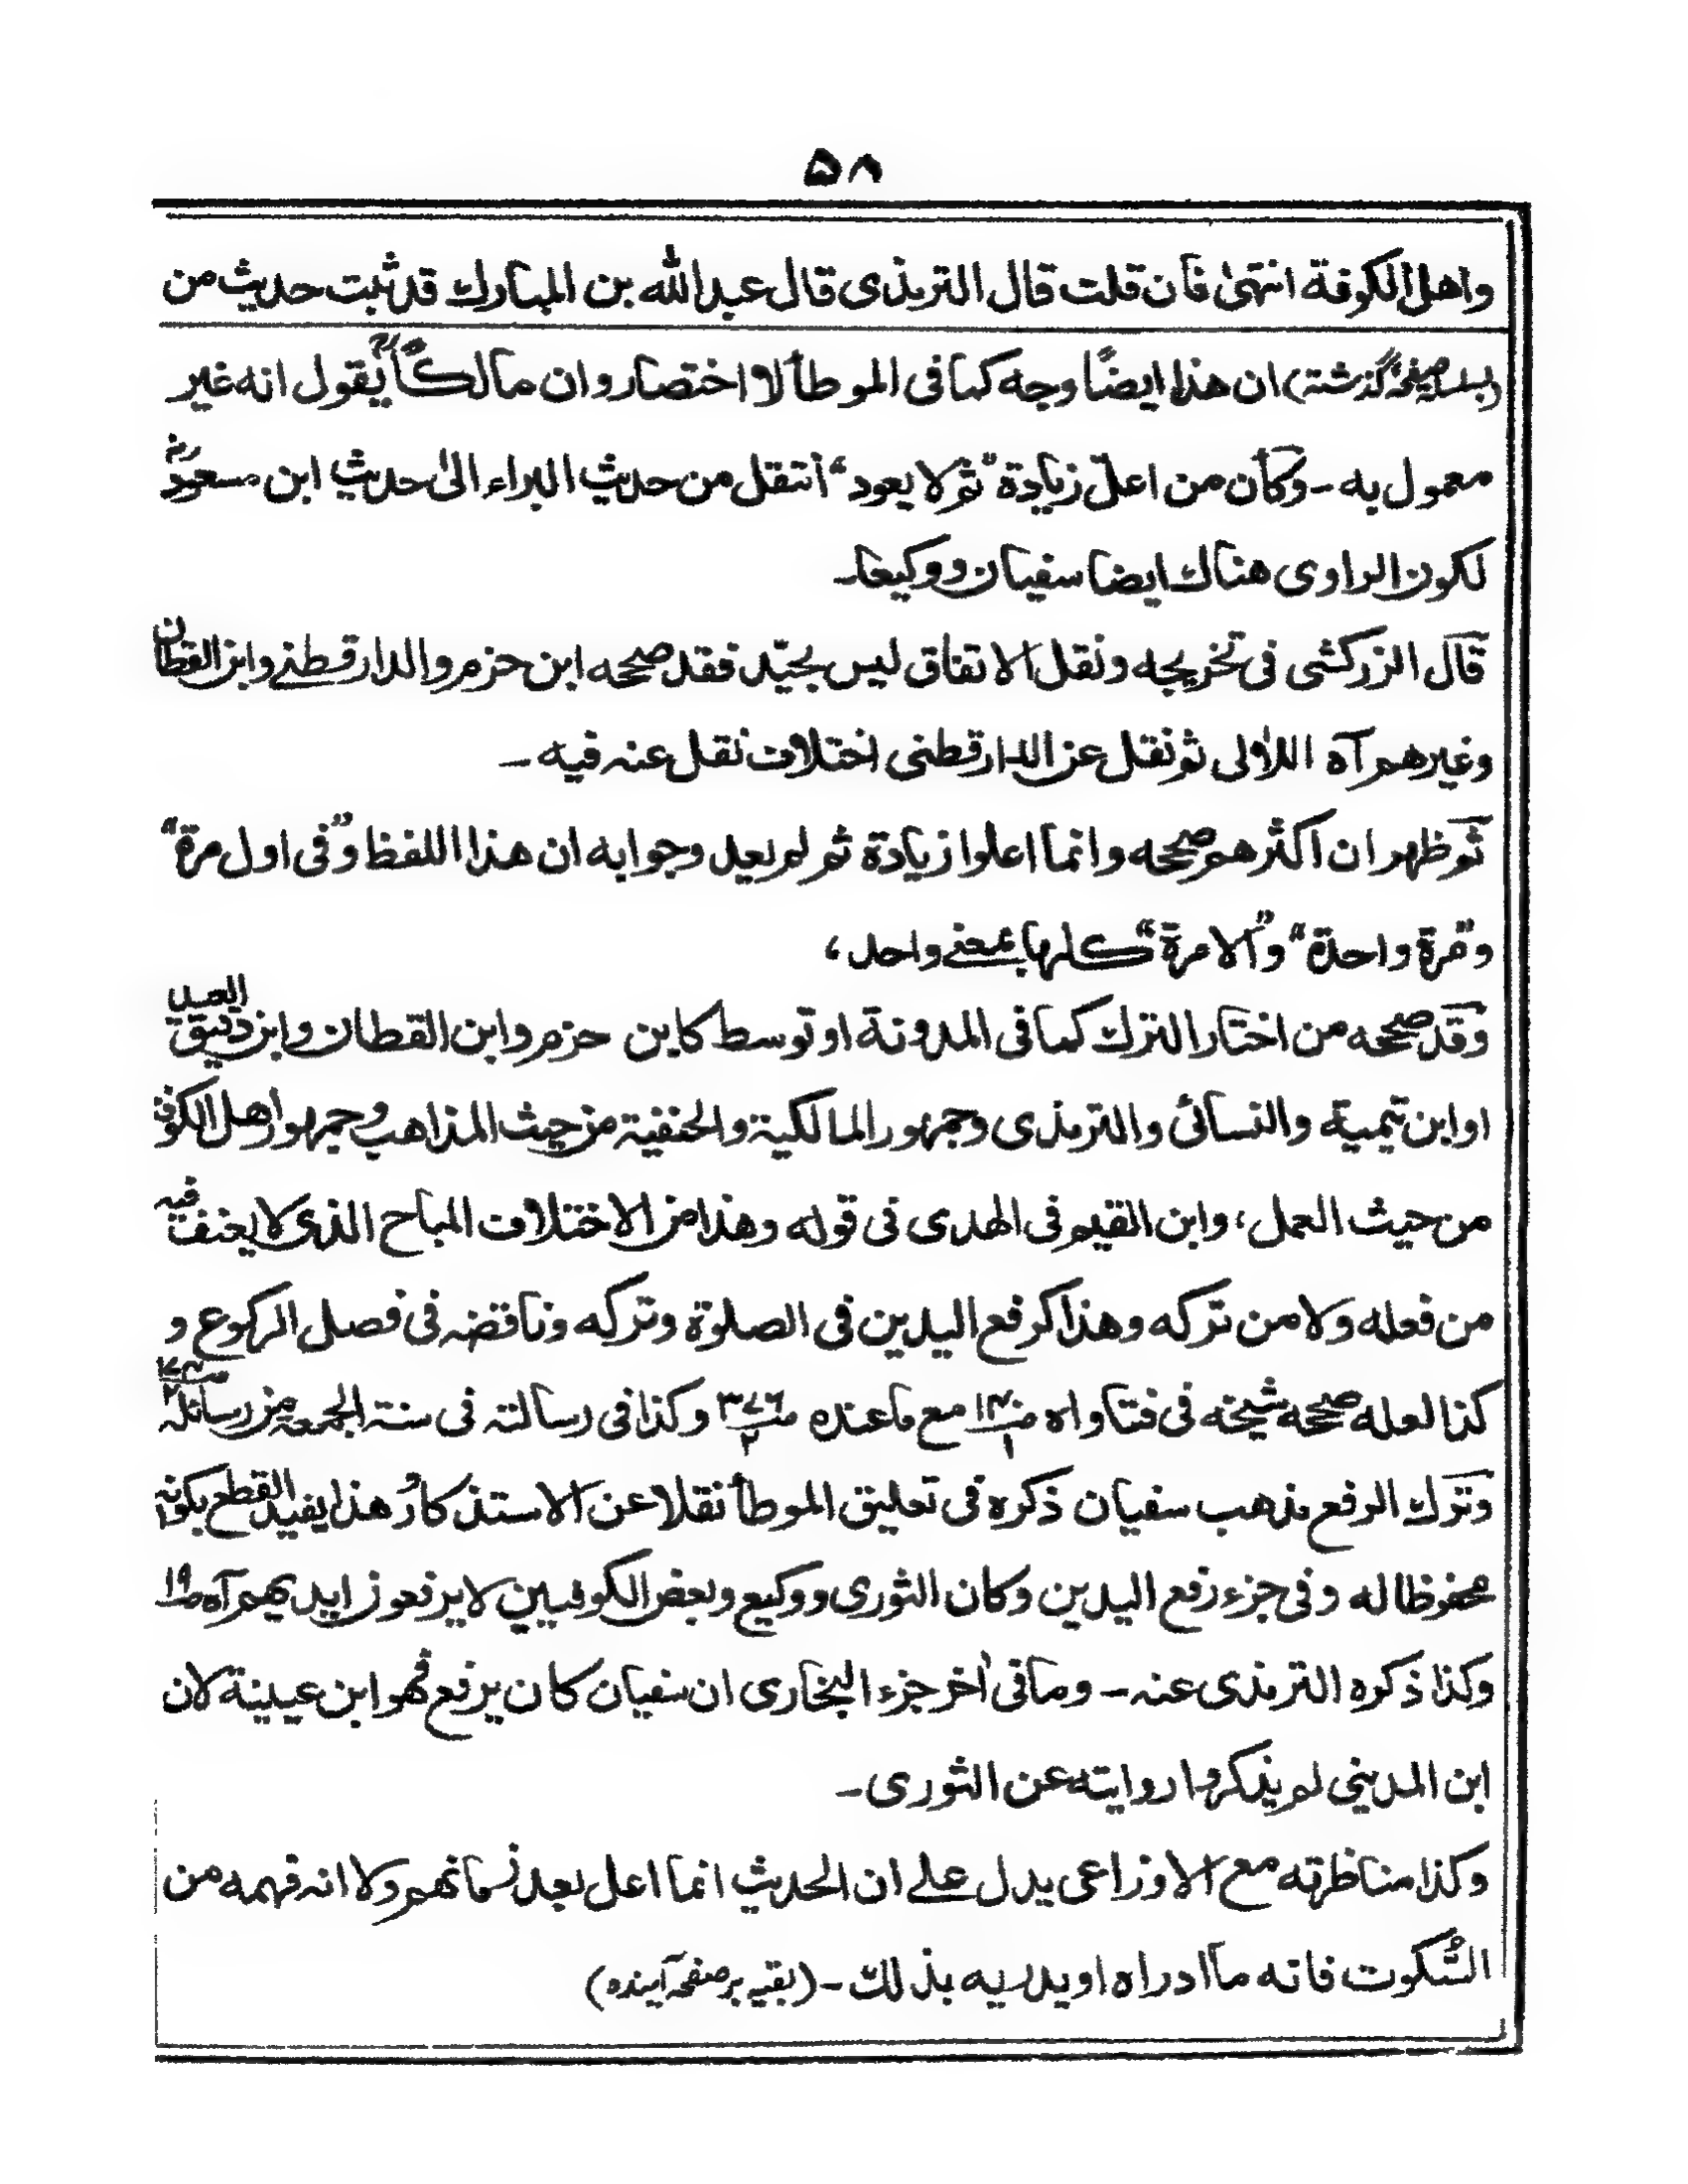 ۵۸
واهل الكوفة انتهىٰ فان قلت قال الترمذى قال عبدالله بن المبارك قد ثبت حديث من
(بسلسلہ صفحۂ گذشتہ) ان هذا ايضًا وجه كما فى الموطأ لا اختصار وان مالكًاؒ يقول انه غير
معمول به ـ وكأن من اعلّ زيادة "ثم لا يعود" أنتقل من حديث البراء الىٰ حديث ابن مسعودؓ
لكون الراوى هناك ايضا سفيان ووكيعا ـ
قال الزركشى فى تخريجه ونقل الاتفاق ليس بجيّد فقد صححه ابن حزم والدارقطنے وابن القطان
وغيرهم آه اللاٰلى ثم نقل عن الدارقطنى اختلاف نقل عنہ فيه ـ
ثم ظهر ان اكثرهم صححه وانما اعلوا زيادة ثم لم يعد وجوابه ان هذا اللفظ و"فى اول مرة"
و"مرة واحدة" و"الا مرة" كلها بمعنے واحد،
وقد صححه من اختار الترك كما فى المدونة او توسط كابن حزم وابن القطان وابن دقيق العيد
او ابن تيمية والنسائى والترمذى وجمهور المالكية والحنفية من حيث المذاهب وجمهور اهل الكوفة
من حيث العمل، وابن القيم فى الهدى فى قوله وهذا من الاختلاف المباح الذى لا يعنف فيه
من فعله ولا من تركه وهذا كرفع اليدين فى الصلوة وتركه وناقضہ فى فصل الركوع و
كذا لعله صححه شيخه فى فتاواه مع ما عنده ص۳۷۶/۲ وكذا فى رسالتہ فى سنۃ الجمعہ من رسائلہ
وترك الرفع مذهب سفيان ذكره فى تعليق الموطأ نقلا عن الاستذكار و هذا يفيد القطع بكونہ
محفوظا له وفى جزء رفع اليدين وكان الثورى ووكيع وبعض الكوفيين لا يرفعون ايديهم آه ص۱۹
وكذا ذكره الترمذى عنہ ـ وما فى اٰخر جزء البخارى ان سفيان كان يرفع فهو ابن عيينة لان
ابن المدينى لم يذكروا روايته عن الثورى ـ
وكذا مناظرته مع الاوزاعى يدل علے ان الحديث انما اعل بعد زمانهم ولا انہ فهمه من
السّكوت فانه ما ادراه او يدليه بذلك ـ (بقیہ بر صفحہ آیندہ)